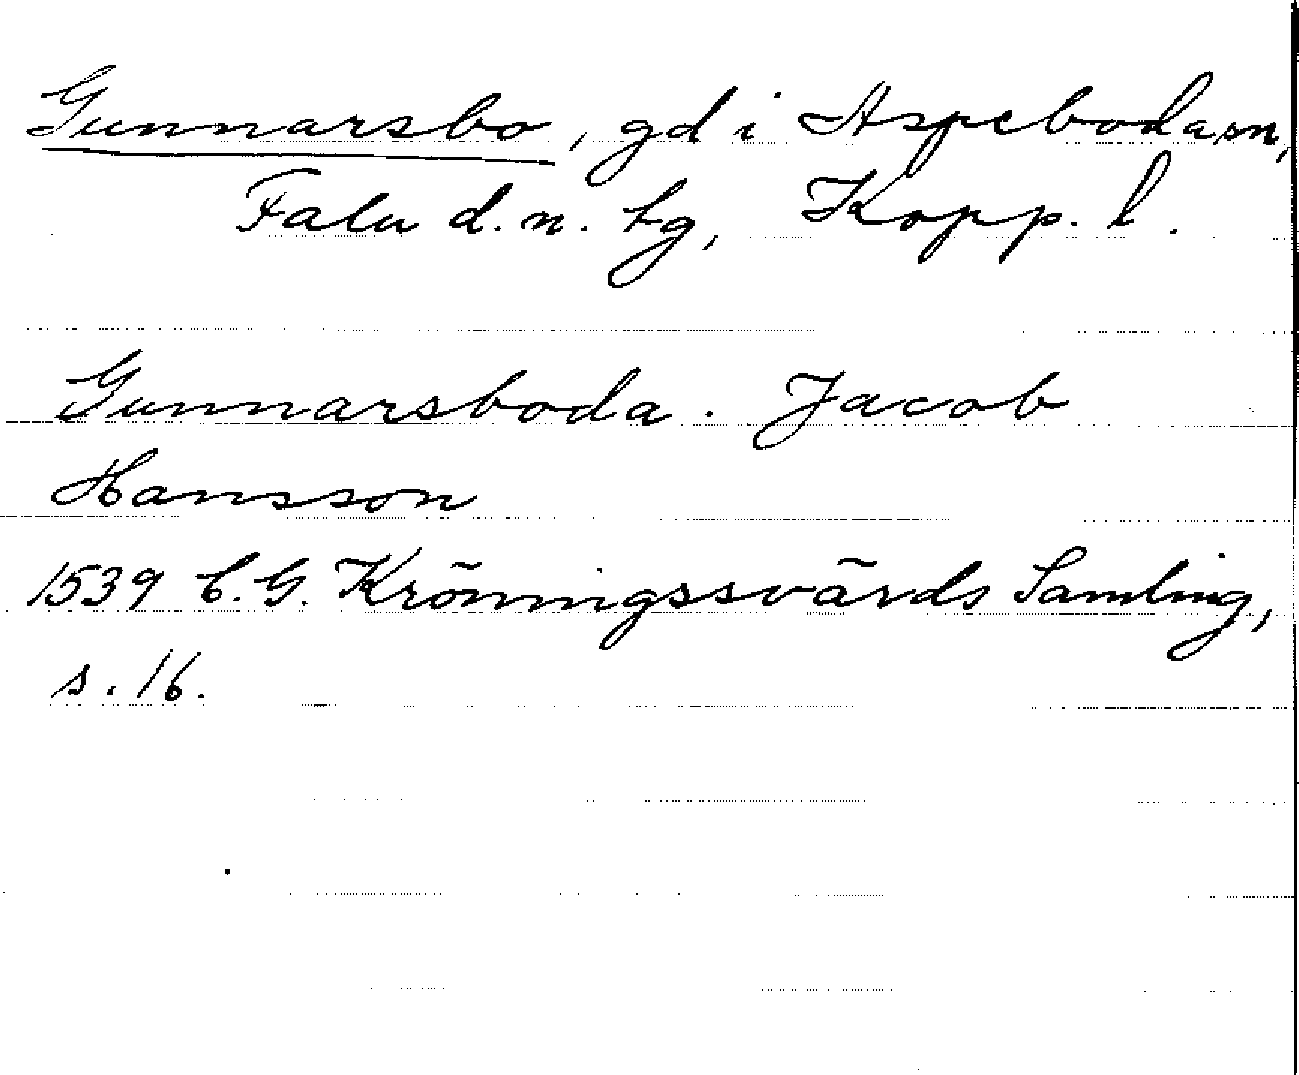 Gunnarsbo, gd i Aspeboda sn,
Falu d.n. tg, Kopp. l.
Gunnarsboda. Jacob
Hansson
1539 C.G. Kröningssvärds Samling,
s. 16.